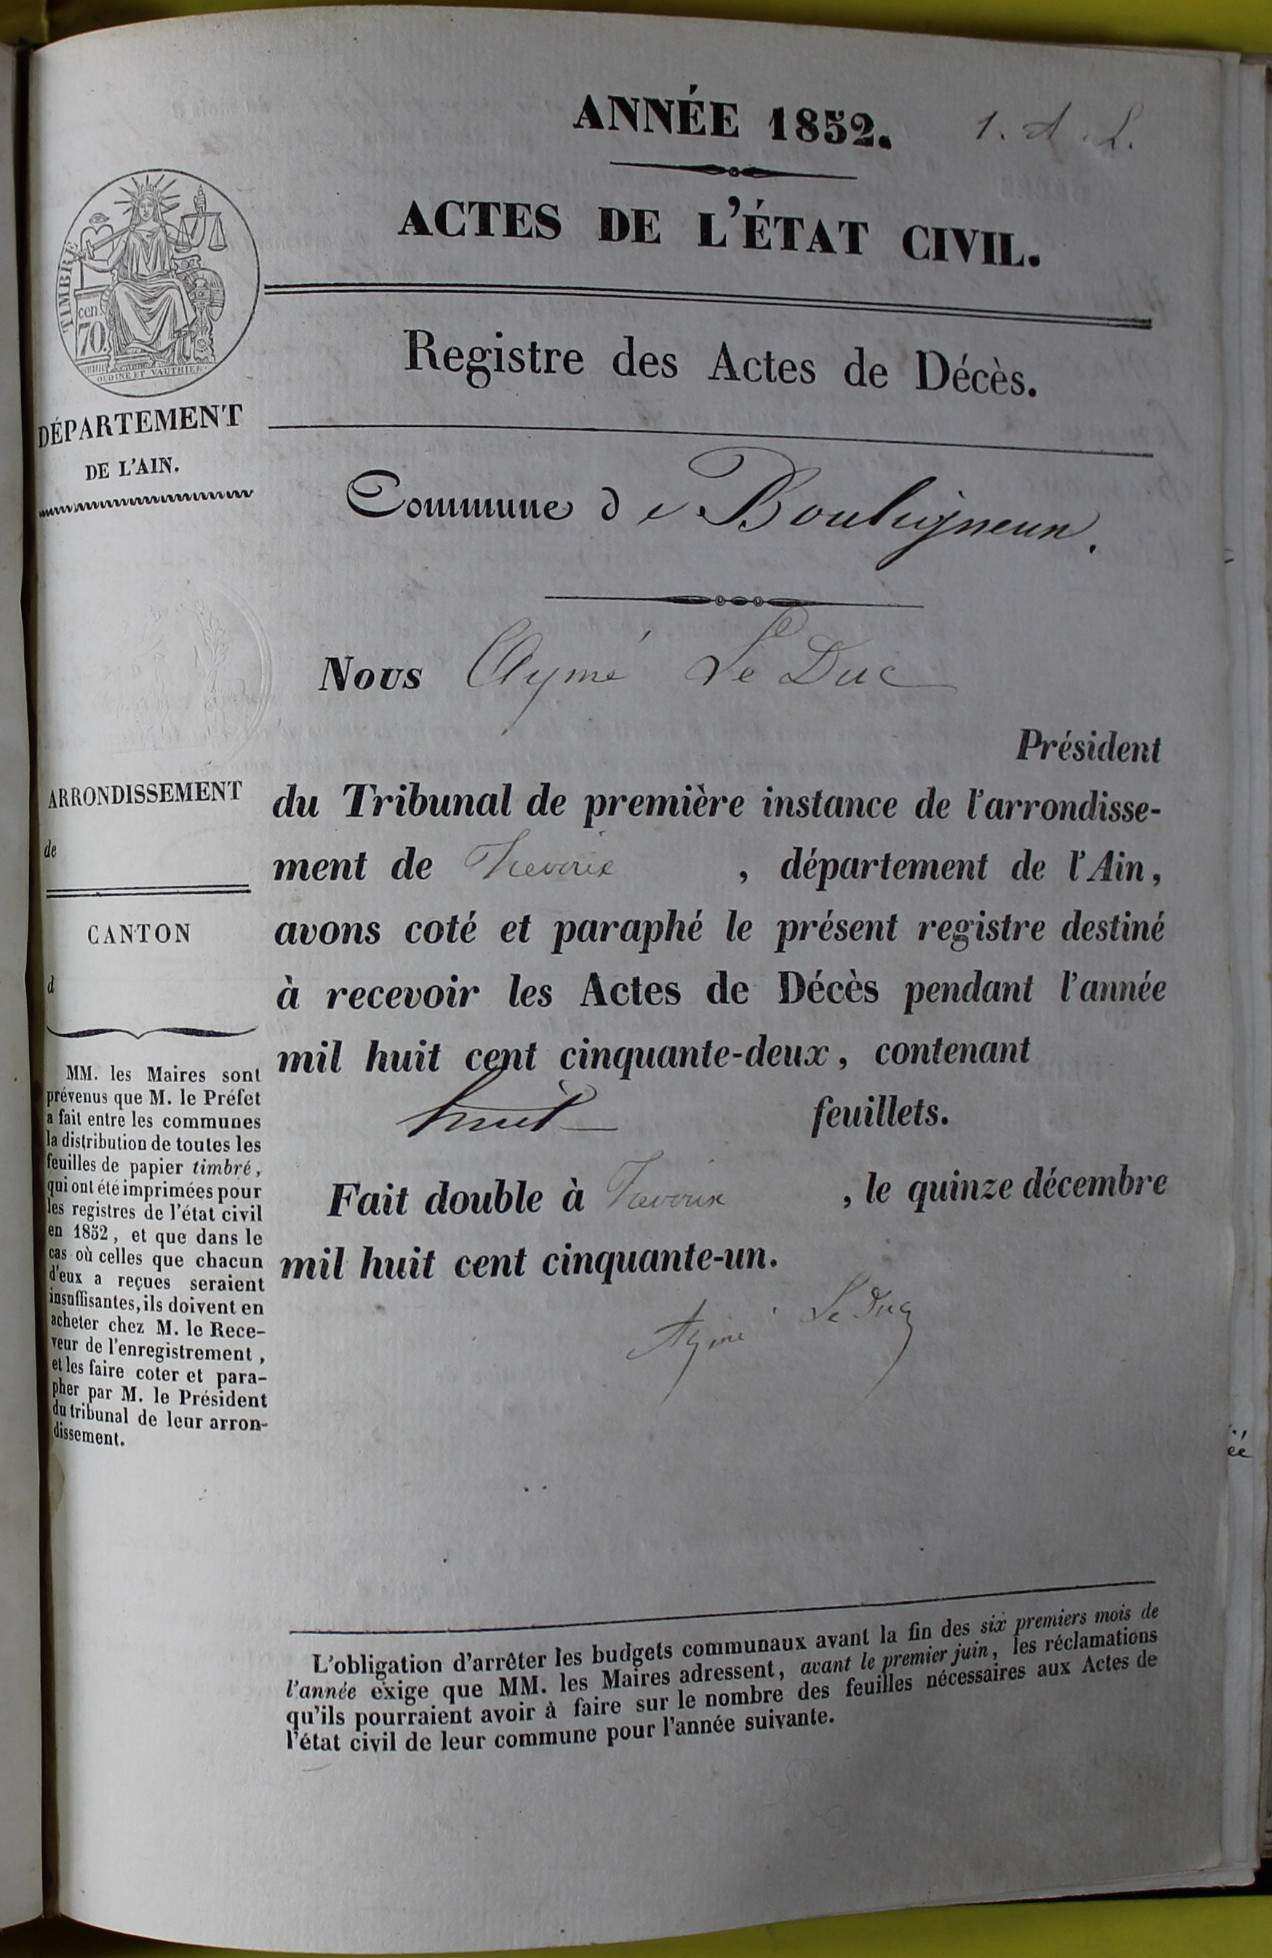 ANNÉE 1852.
1. A. L.
ACTES DE L'ÉTAT CIVIL.
TIMBRE
cen.
70
OUDINÉ ET VAUTHIER
Registre des Actes de Décès.
DÉPARTEMENT
DE L'AIN.
Commune de Bouligneux.
Nous Aymé Le Duc
Président
du Tribunal de première instance de l'arrondisse-
ment de Trevoux , département de l'Ain,
avons coté et paraphé le présent registre destiné
à recevoir les Actes de Décès pendant l'année
mil huit cent cinquante-deux, contenant
huit feuillets.
Fait double à Trevoux , le quinze décembre
mil huit cent cinquante-un.
Aymé Le Duc
ARRONDISSEMENT
de
CANTON
d
MM. les Maires sont
prévenus que M. le Préfet
a fait entre les communes
la distribution de toutes les
feuilles de papier timbré,
qui ont été imprimées pour
les registres de l'état civil
en 1852, et que dans le
cas où celles que chacun
d'eux a reçues seraient
insuffisantes, ils doivent en
acheter chez M. le Rece-
veur de l'enregistrement,
et les faire coter et para-
pher par M. le Président
du tribunal de leur arron-
dissement.
L'obligation d'arrêter les budgets communaux avant la fin des six premiers mois de
l'année exige que MM. les Maires adressent, avant le premier juin, les réclamations
qu'ils pourraient avoir à faire sur le nombre des feuilles nécessaires aux Actes de
l'état civil de leur commune pour l'année suivante.